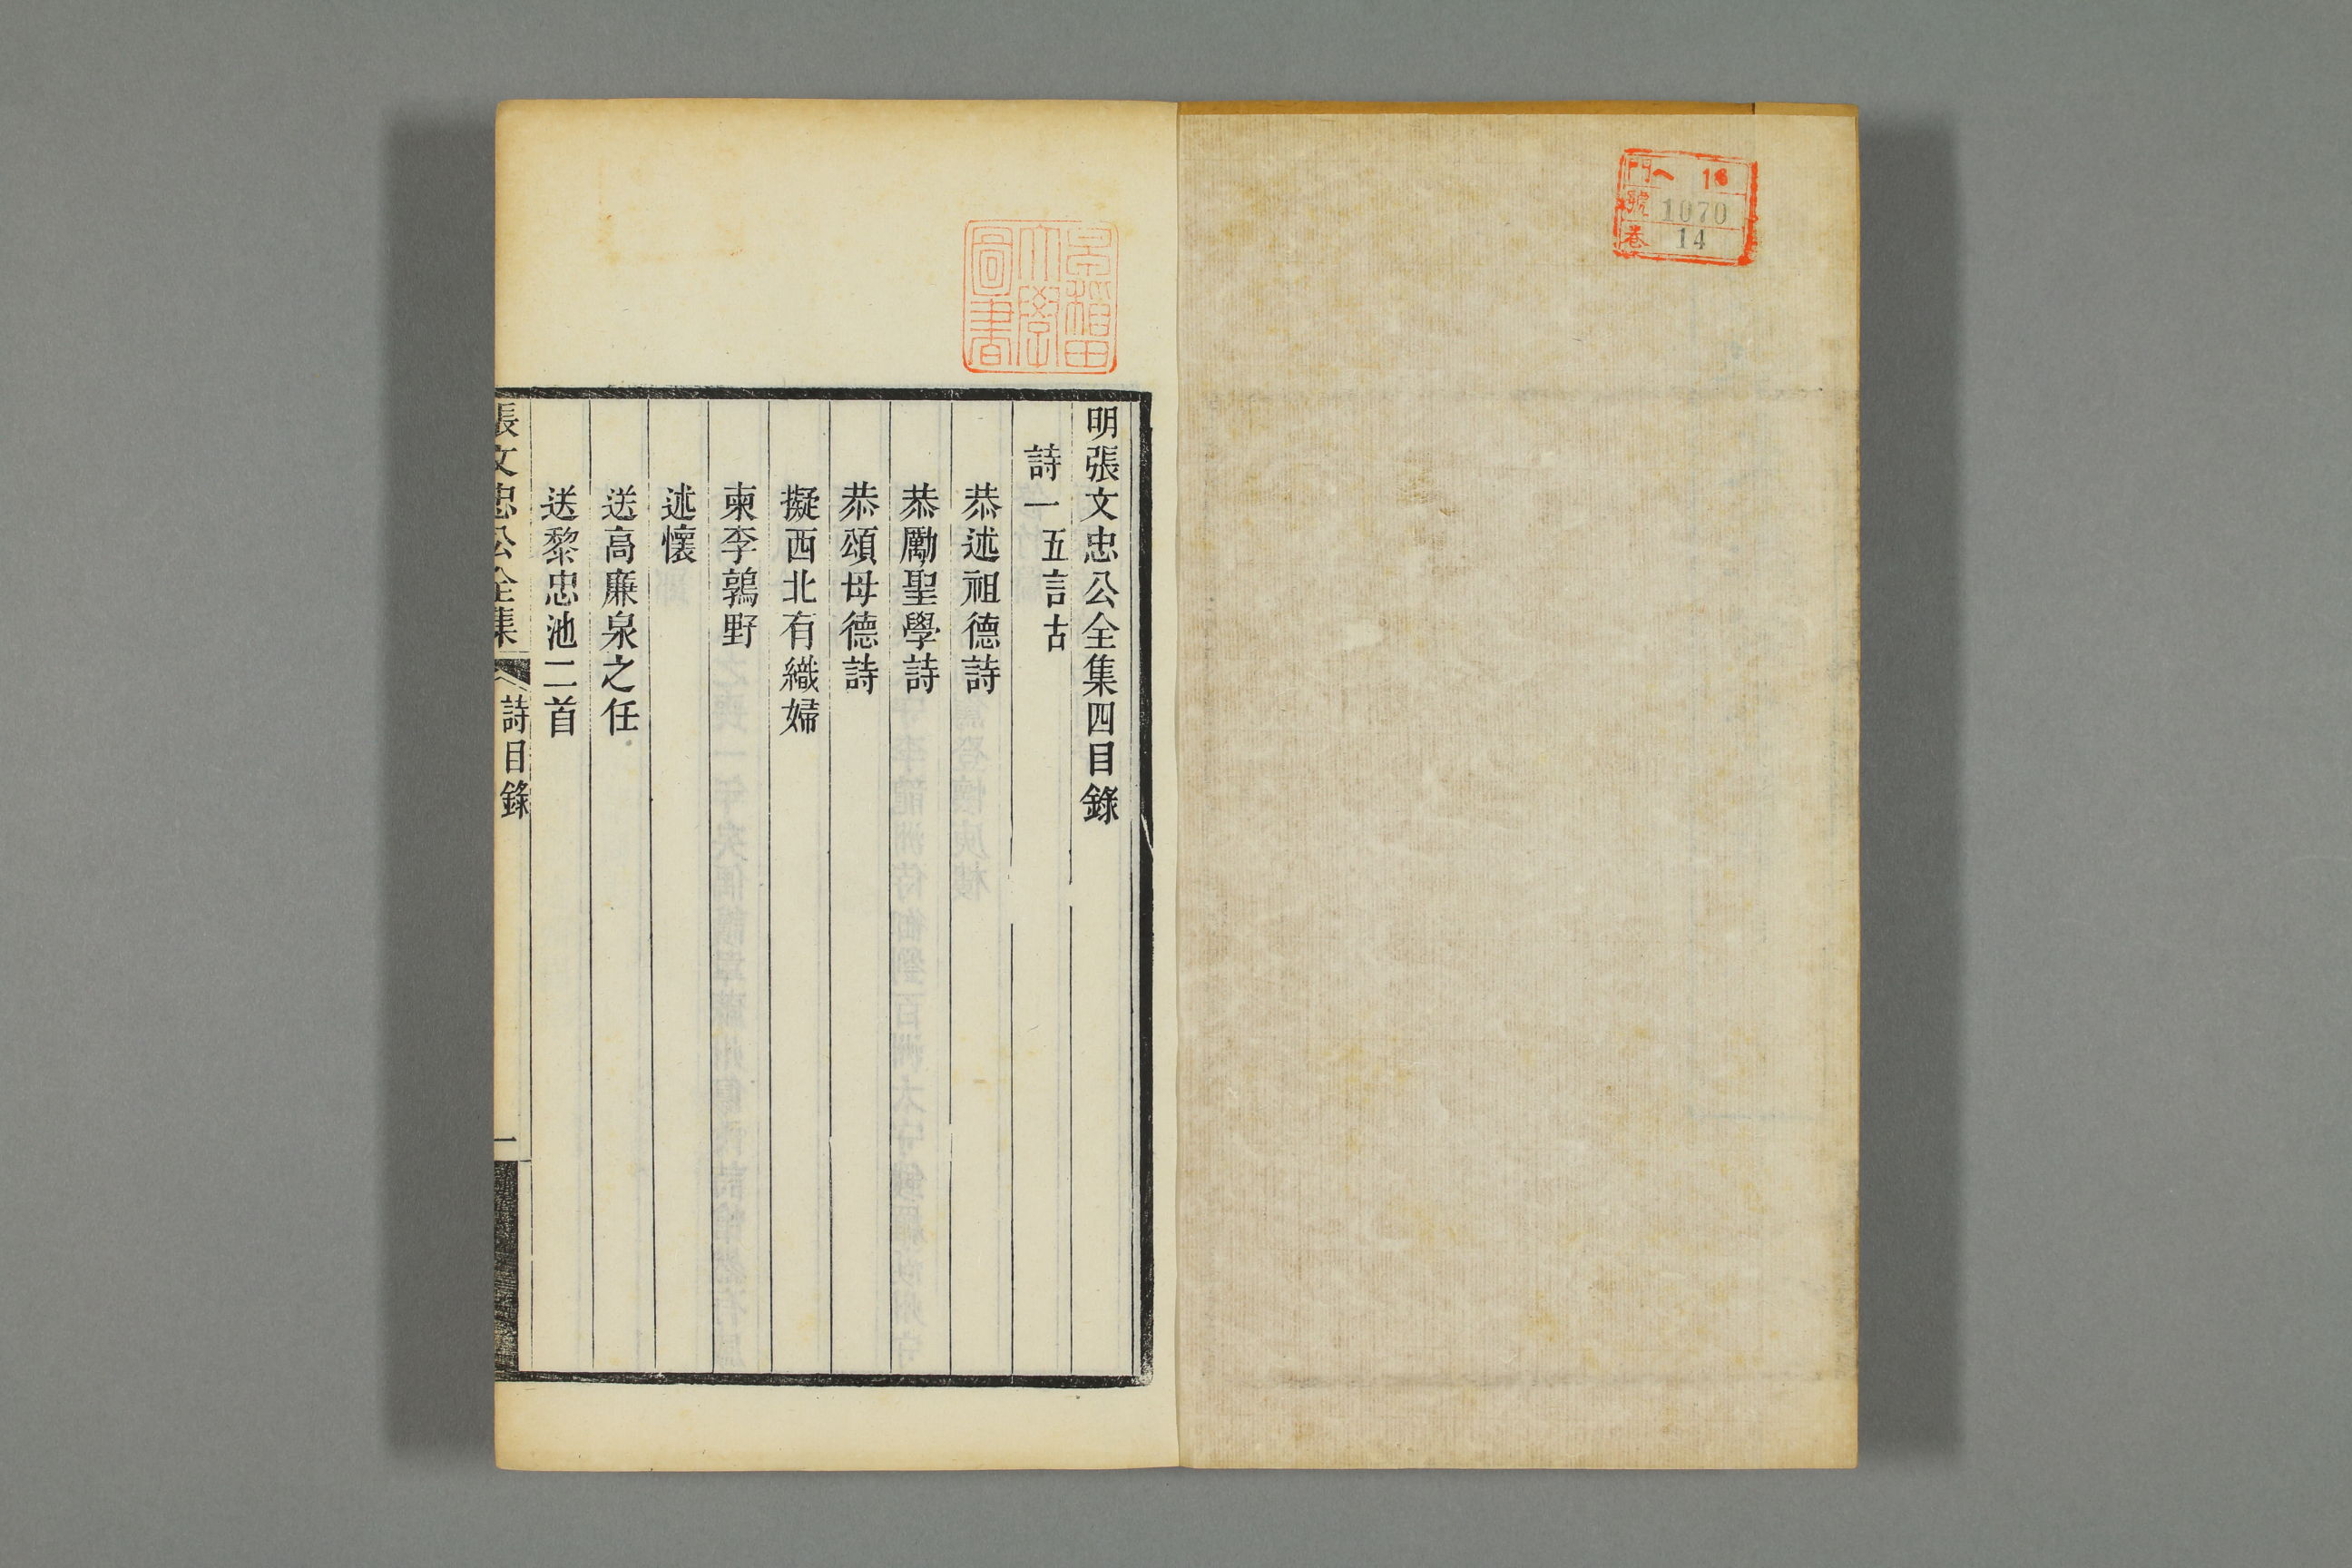 門 ヘ 16
號 1070
卷 14
早稲田大學圖書
明張文忠公全集四目錄
詩一 五言古
恭述祖德詩
恭勵聖學詩
恭頌母德詩
擬西北有織婦
柬李鶉野
述懷
送高廉泉之任
送黎忠池二首
張文忠公全集 詩目錄 一